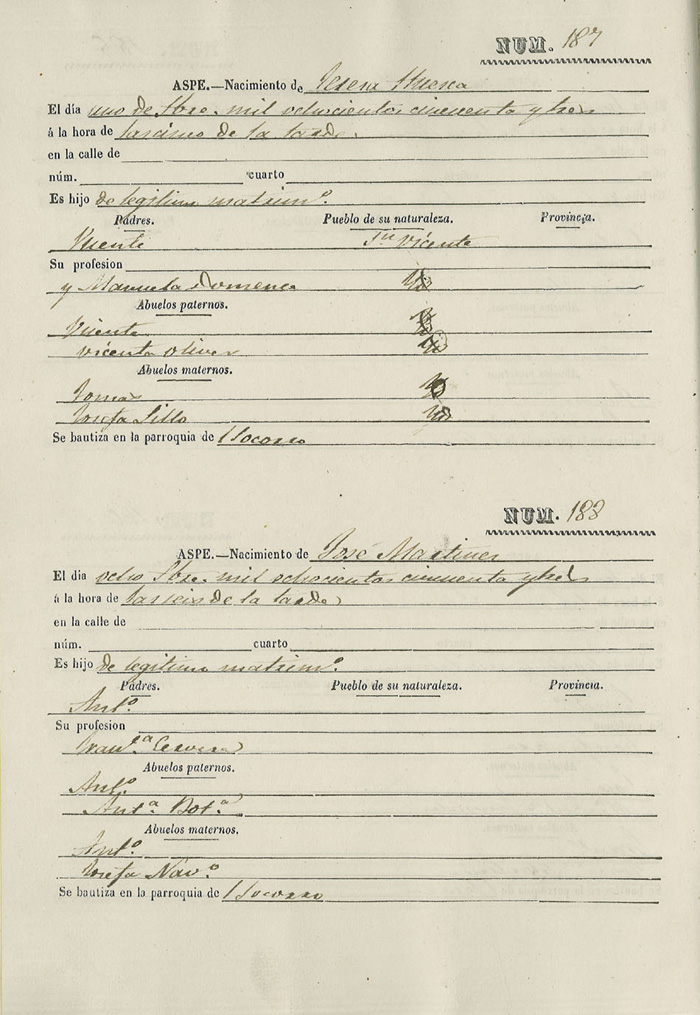 NUM. 187
ASPE.—Nacimiento de Teresa Huesca
El día uno de Sbre. mil ochocientos cincuenta y tres
á la hora de las cinco de la tarde.
en la calle de
núm. cuarto
Es hijo de legitimo matrim.º
Padres. Pueblo de su naturaleza. Provincia.
Vicente Sn. Vicente
Su profesion
y Manuela Domenec
Abuelos paternos.
Vicente
Vicenta Oliver
Abuelos maternos.
Tomas
Josefa Lillo
Se bautiza en la parroquia de Socorro
NUM. 188
ASPE.—Nacimiento de José Martinez
El día ocho Sbre. mil ochocientos cincuenta y tres
á la hora de las seis de la tarde
en la calle de
núm. cuarto
Es hijo de legitimo matrim.º
Padres. Pueblo de su naturaleza. Provincia.
Ant.º
Su profesion
Fran.ca Cervera
Abuelos paternos.
Ant.º
Ant.ª Bot.ª
Abuelos maternos.
Ant.º
Josefa Nav.º
Se bautiza en la parroquia de Socorro